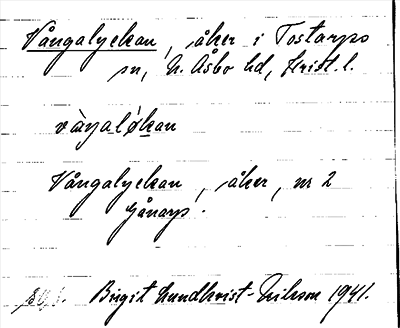 Vångalyckan, åker i Tostarps
sn, N. Åsbo hd, Krist. l.
Vångalyckan, åker, nr 2
Gånarp.
Birgit Lundkvist-Nilsson 1941.